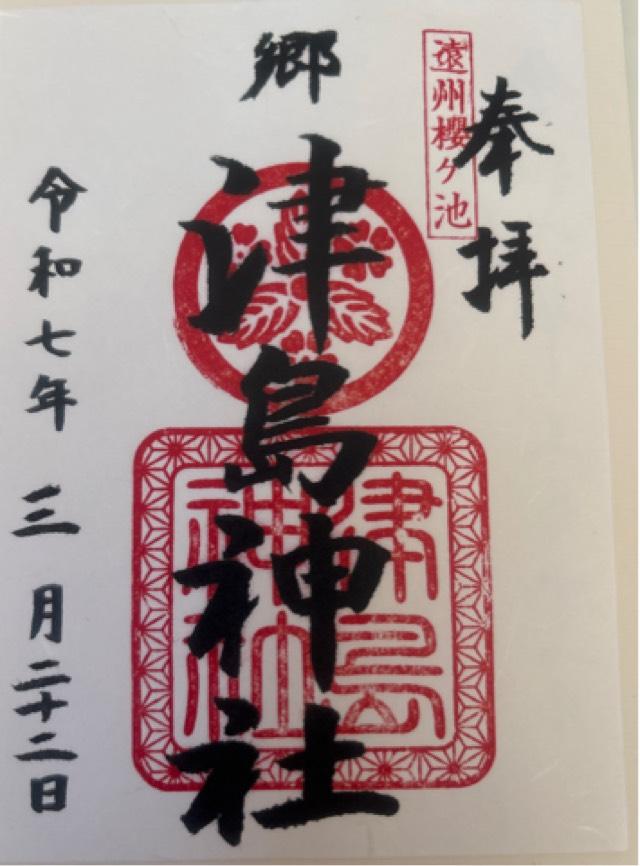 奉拝
遠州櫻ケ池
郷
津島神社
津島神社
令和七年 三月二十二日